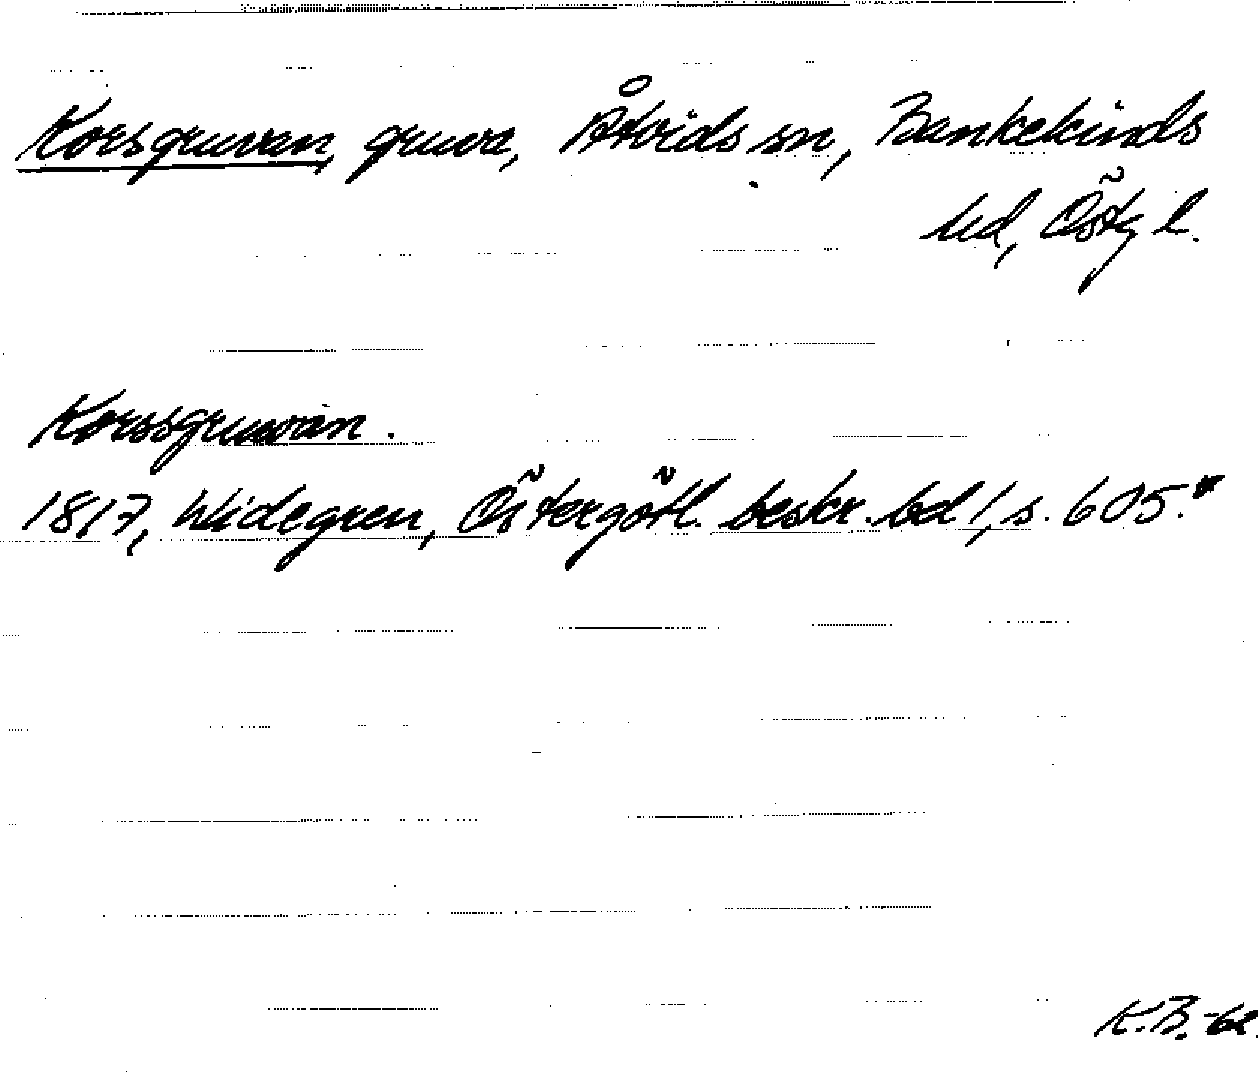 Korsgruvan, gruva, Åtvids sn, Bankekinds
hd, Östg l.
Korssgruwan.
1817, Widegren, Östergötl. beskr. bd 1, s. 605.
K.B.-bl.